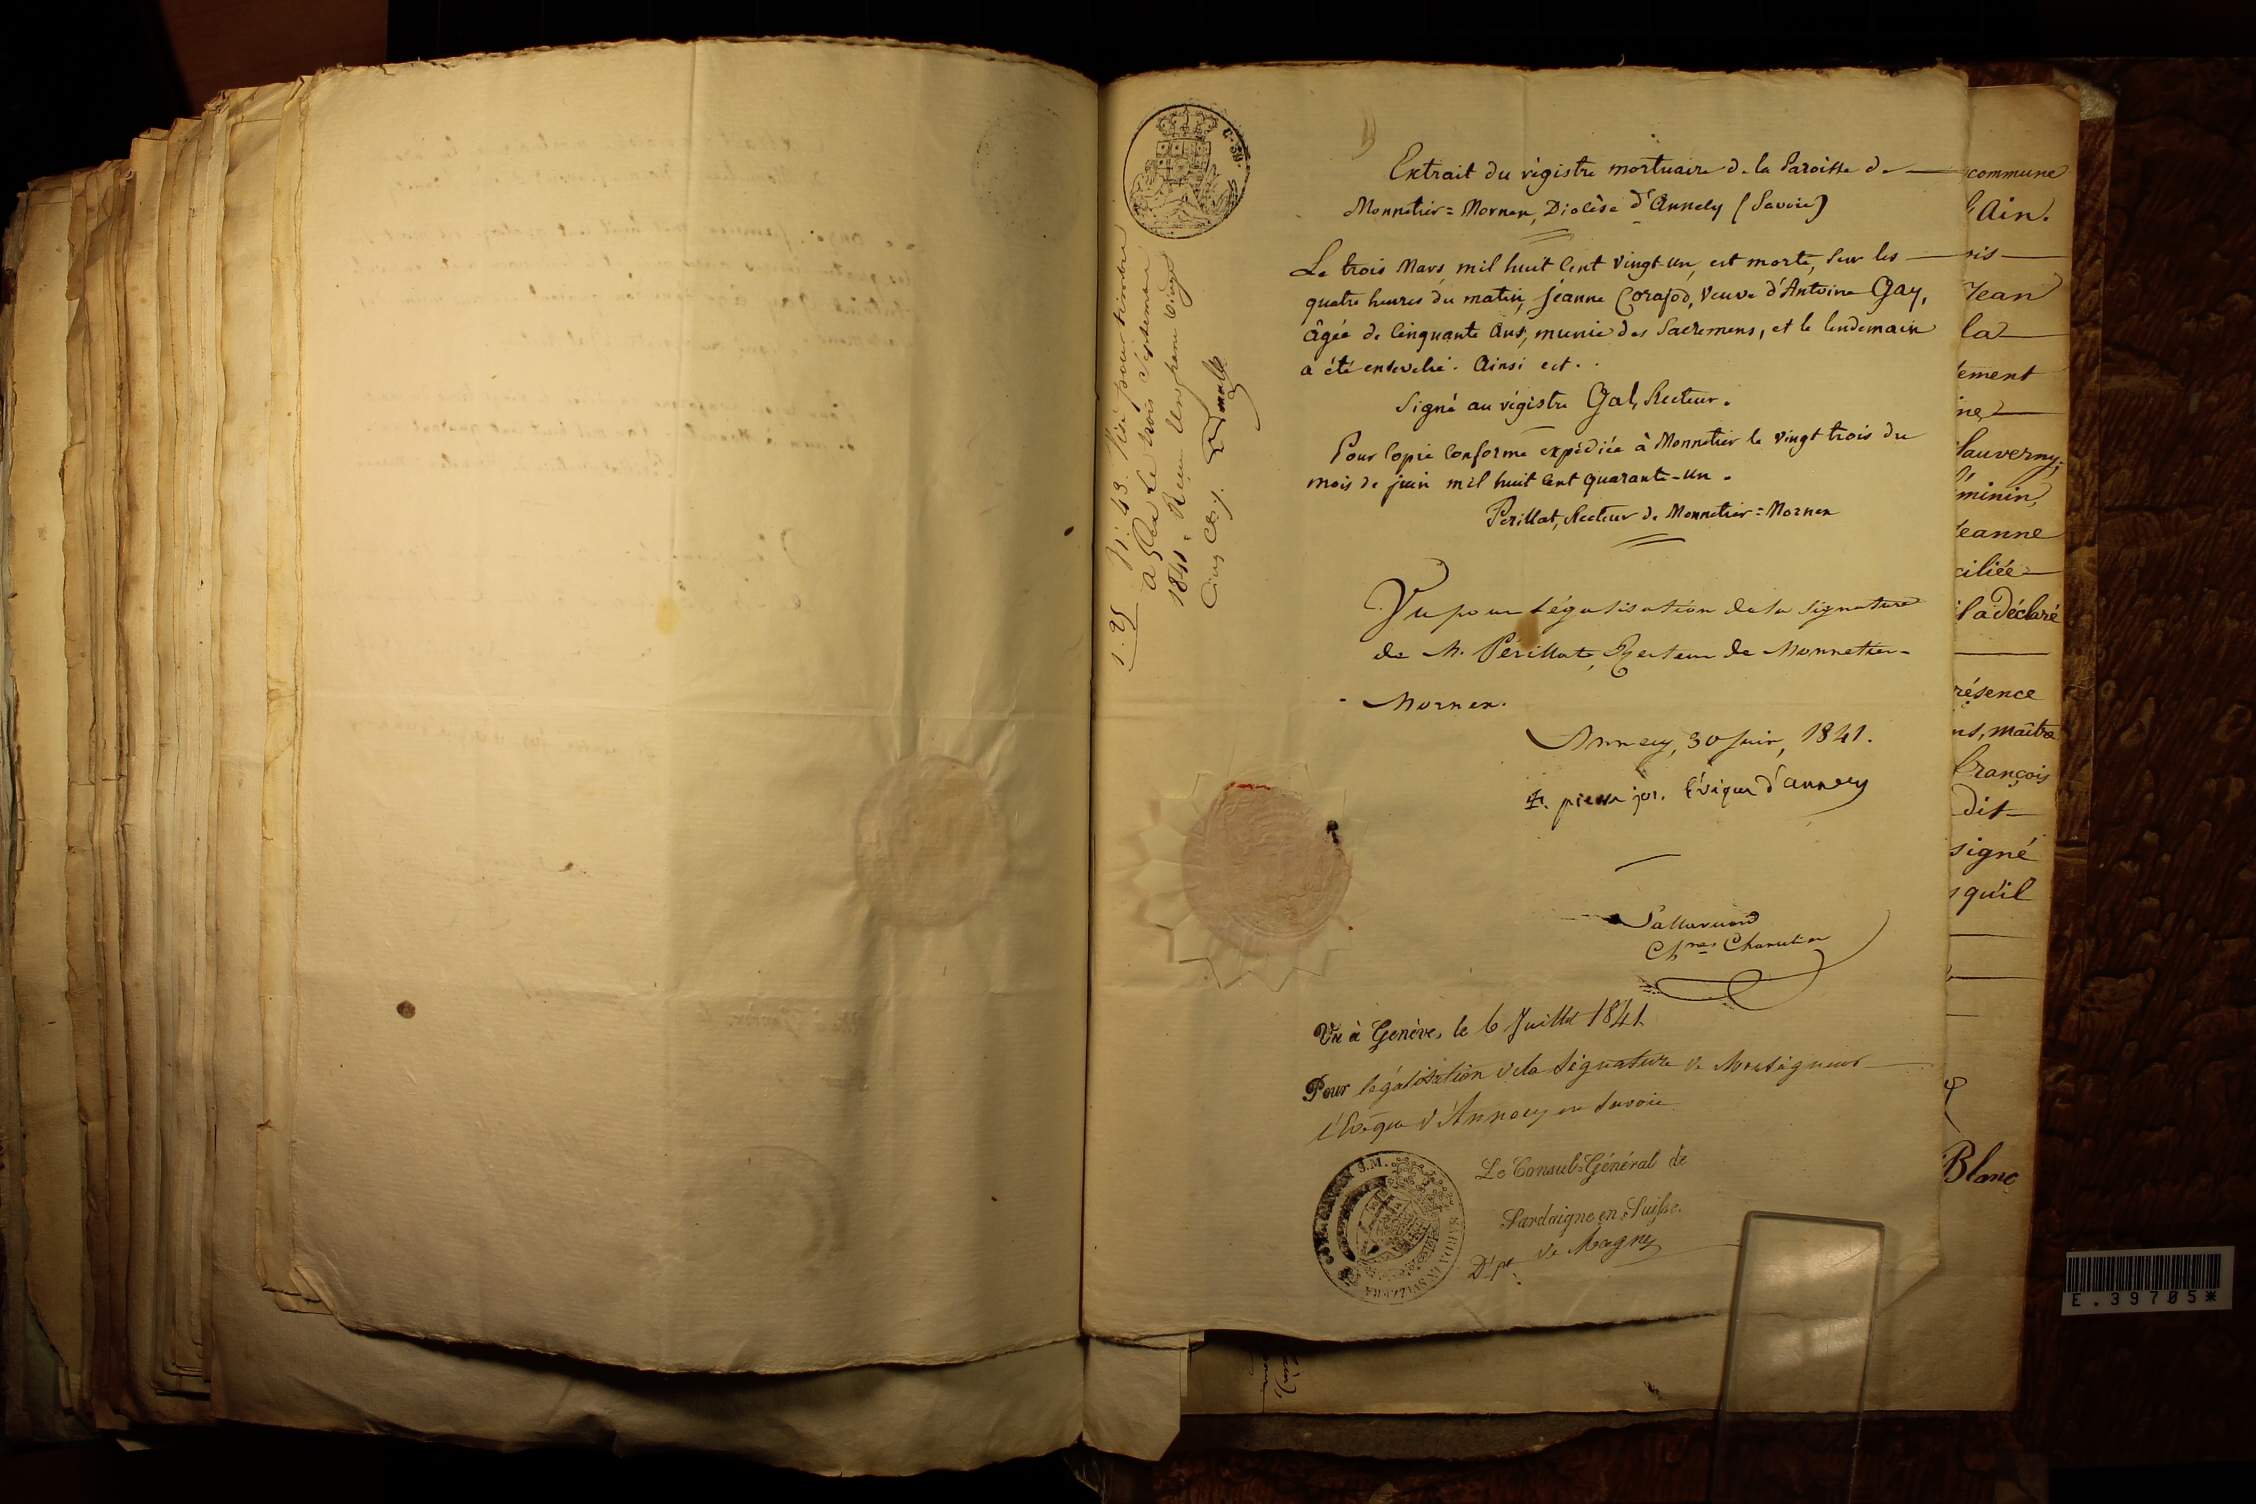 C. 39.
Extrait du régistre mortuaire de la Paroisse de
Monnetier=Mornex, Diocèse d'Annecy (Savoie)
Le trois Mars mil huit Cent vingt-un, est morte, sur les
quatre heures du matin, Jeanne Corajod, Veuve d'Antoine Gay,
âgée de Cinquante Ans, munie des Sacremens, et le lendemain
a été ensevelie. Ainsi est.
Signé au régistre Gal, Recteur.
Pour Copie Conforme expédiée à Monnetier le vingt trois du
mois de juin mil huit Cent quarante-un.
Périllat, Recteur de Monnetier=Mornex
Vu pour légalisation de la signature
de M. Périllat, Recteur de Monnetier-
-Mornex.
Annecy, 30 Juin, 1841.
+ pierre jos. Evêque d'Annecy
Vu à Genève, le 6 Juillet 1841
Pour légalisation de la Signature de Monseigneur
l'Evêque d'Annecy en Savoie
Le Consul=Général de
Sardaigne en Suisse.
De Magny
N. 43. Visé pour timbre
à Gex le trois septembre
1841. Reçu un franc vingt
cinq ces.
1.25
commune
Ain.
Jean
la
Sauverny;
Jeanne
a déclaré
maître
François
dit
signé
qu'il
Blanc
E.39705*